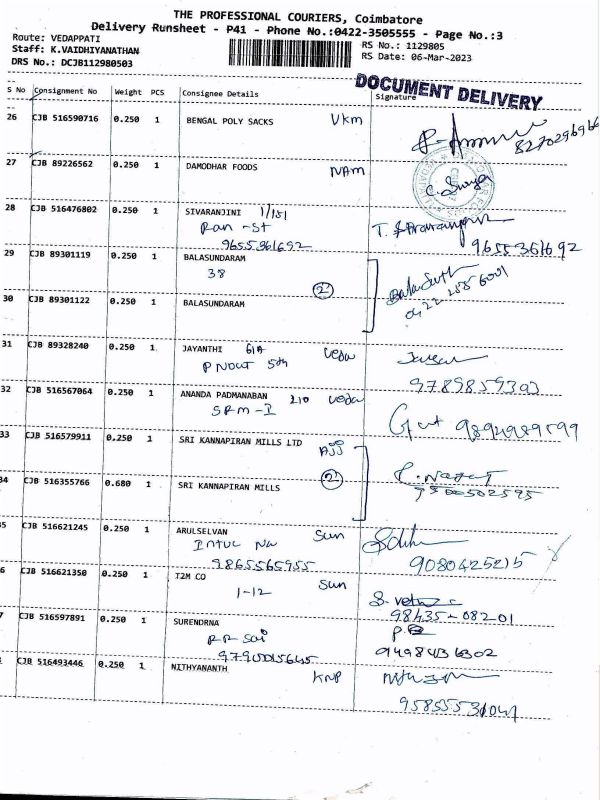 THE PROFESSIONAL COURIERS, Coimbatore
Delivery Runsheet - P41 - Phone No.:0422-3505555 - Page No.:3
Route: VEDAPPATI
RS No.: 1129805
Staff: K.VAIDHIYANATHAN
RS Date: 06-Mar-2023
DRS No.: DCJB112980503
DOCUMENT DELIVERY
S No Consignment No Weight PCS Consignee Details Signature
26 CJB 516590716 0.250 1 BENGAL POLY SACKS Vkm
8270296966
27 CJB 89226562 0.250 1 DAMODHAR FOODS NAM
28 CJB 516476802 0.250 1 SIVARANJINI 1/151
Ran -St
9655361692 9655361692
29 CJB 89301119 0.250 1 BALASUNDARAM
38
2
30 CJB 89301122 0.250 1 BALASUNDARAM
31 CJB 89328240 0.250 1 JAYANTHI 61A Veda
5th
9789859303
32 CJB 516567064 0.250 1 ANANDA PADMANABAN 210 Veda
SRM-I
9894989599
33 CJB 516579911 0.250 1 SRI KANNAPIRAN MILLS LTD AJJ
34 CJB 516355766 0.680 1 SRI KANNAPIRAN MILLS 2
5 CJB 516621245 0.250 1 ARULSELVAN Sun
9865565955 9080425215
6 CJB 516621350 0.250 1 T2M CO Sun
1-12
98435-08201
7 CJB 516597891 0.250 1 SURENDRNA
RR Sai
9498436302
CJB 516493446 0.250 1 NITHYANANTH KNP